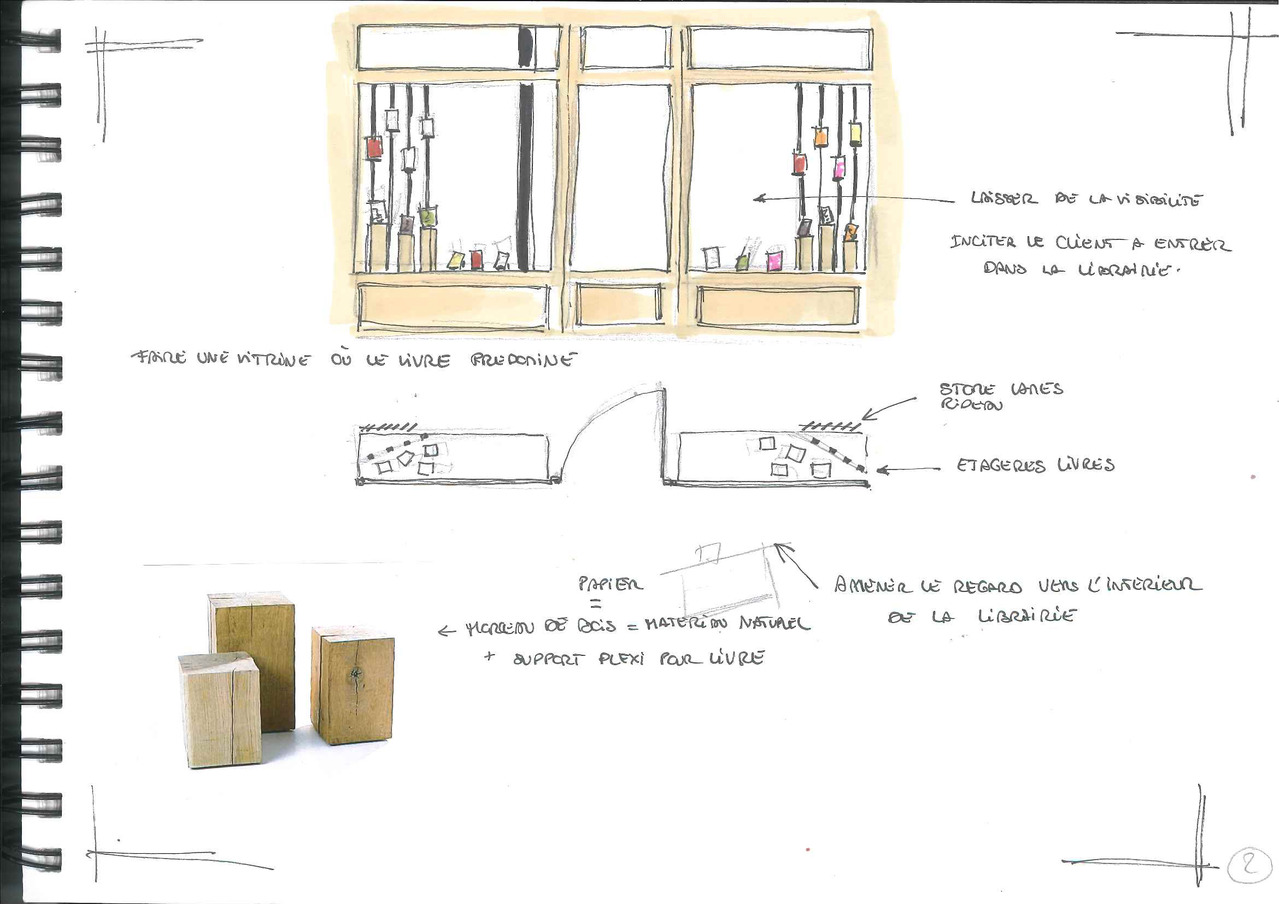 LAISSER DE LA VISIBILITE
INCITER LE CLIENT A ENTRER
DANS LA LIBRAIRIE.
FAIRE UNE VITRINE OÙ LE LIVRE PREDOMINE
STORE LAMES
RIDEAU
ETAGERES LIVRES
PAPIER
=
← MORCEAU DE BOIS = MATERIAU NATUREL
+ SUPPORT PLEXI POUR LIVRE
AMENER LE REGARD VERS L'INTERIEUR
DE LA LIBRAIRIE
2